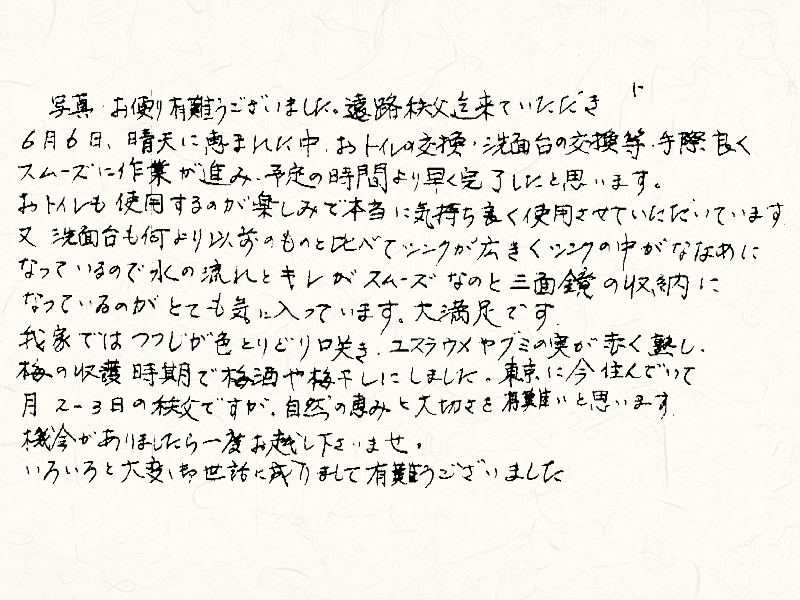 写真・お便り有難うございました。遠路秩父迄来ていただき
に
6月6日、晴天に恵まれた中、おトイレの交換・洗面台の交換等・手際良く
スムーズに作業が進み、予定の時間より早く完了したと思います。
おトイレも使用するのが楽しみで本当に気持ち良く使用させていただいています
又 洗面台も何より以前のものと比べてシンクが広きくシンクの中がななめに
なっているので水の流れとキレがスムーズなのと三面鏡の収納に
なっているのがとても気に入っています。大満足です
我家ではつつじが色とりどり咲き、ユスラウメやグミの実が赤く熟し、
梅の収護時期で梅酒や梅干しにしました。東京に今住んでいて
月2-3日の秩父ですが、自然の恵みと大切さを有難いと思います
機会がありましたら一度お越し下さいませ。
いろいろと大変お世話に成りまして有難うございました